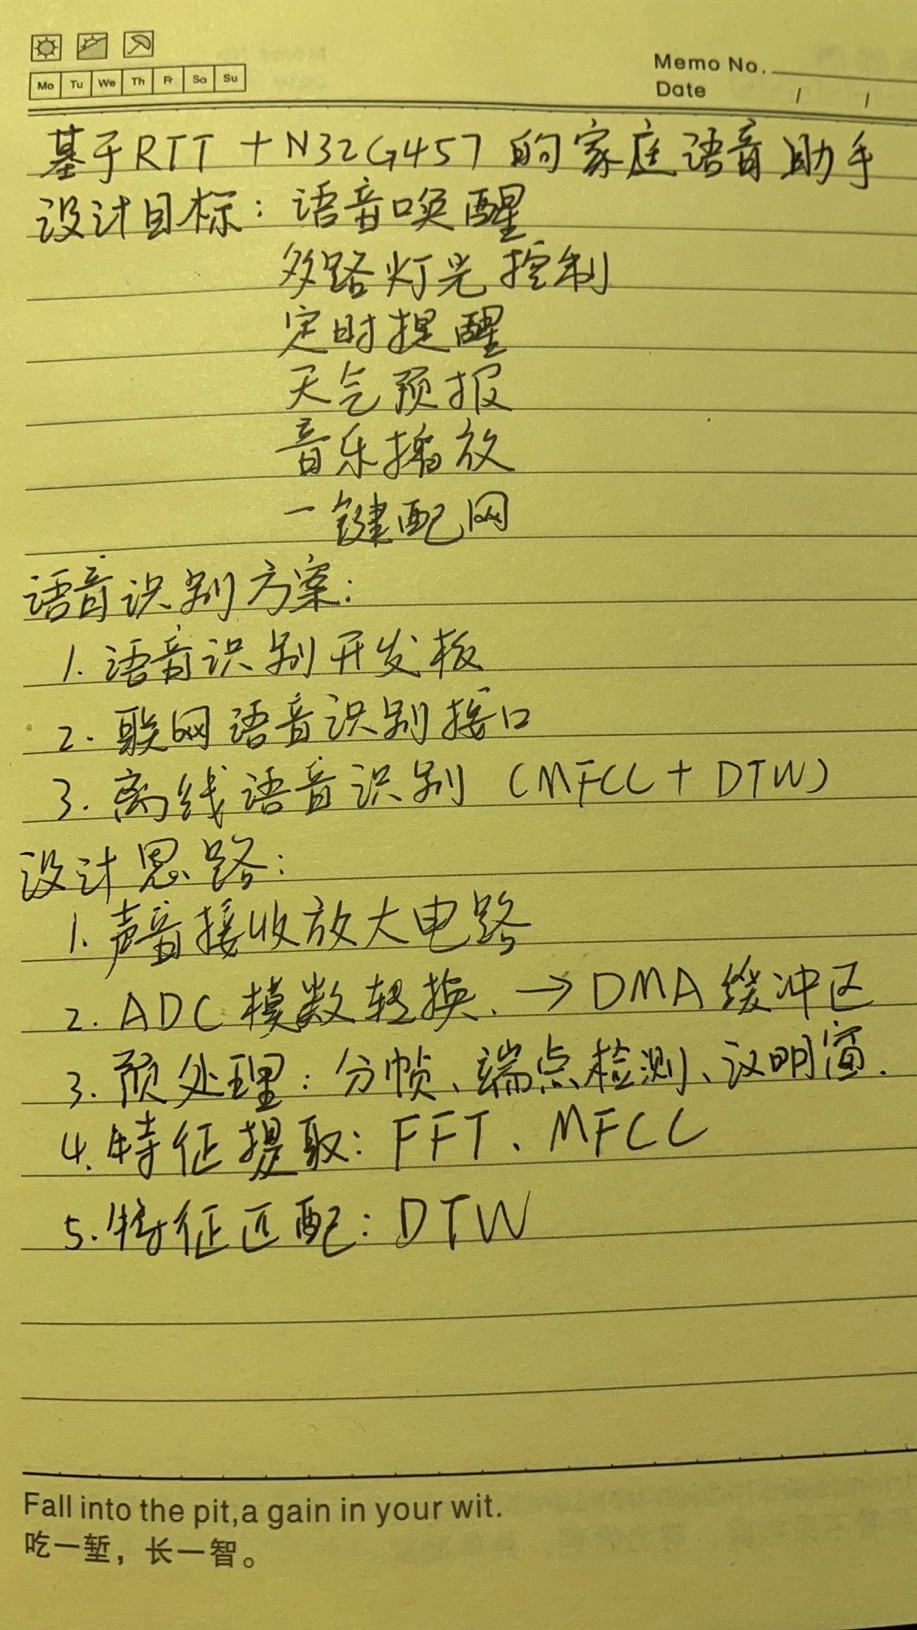 Mo Tu We Th Fr Sa Su
Memo No.
Date / /
基于RTT+N32G457的家庭语音助手
设计目标：语音唤醒
多路灯光控制
定时提醒
天气预报
音乐播放
一键配网
语音识别方案：
1.语音识别开发板
2.联网语音识别接口
3.离线语音识别（MFCC+DTW）
设计思路：
1.声音接收放大电路
2.ADC模数转换.→DMA缓冲区
3.预处理：分帧、端点检测、汉明窗.
4.特征提取：FFT、MFCC
5.特征匹配：DTW
Fall into the pit,a gain in your wit.
吃一堑，长一智。